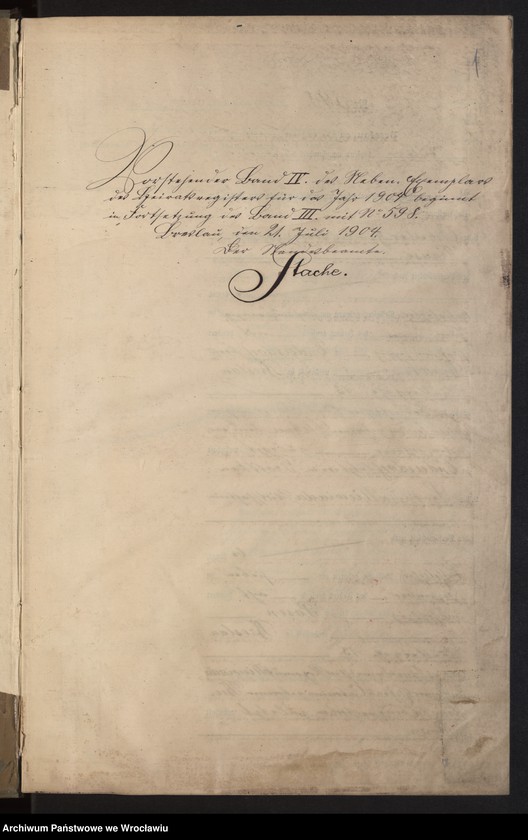 1
Vorstehender Band IV. des Neben-Exemplars
des Heiratsregisters für das Jahr 1904 beginnt
in Fortsetzung des Band III. mit No 598.
Breslau, den 21. Juli 1904.
Der Standesbeamte.
Stache.
Archiwum Państwowe we Wrocławiu